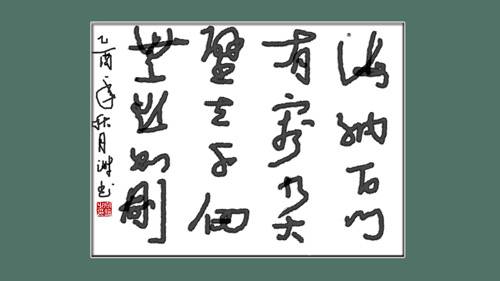 海纳百川
有容乃大
壁立千仞
無欲则剛
乙酉年秋月书